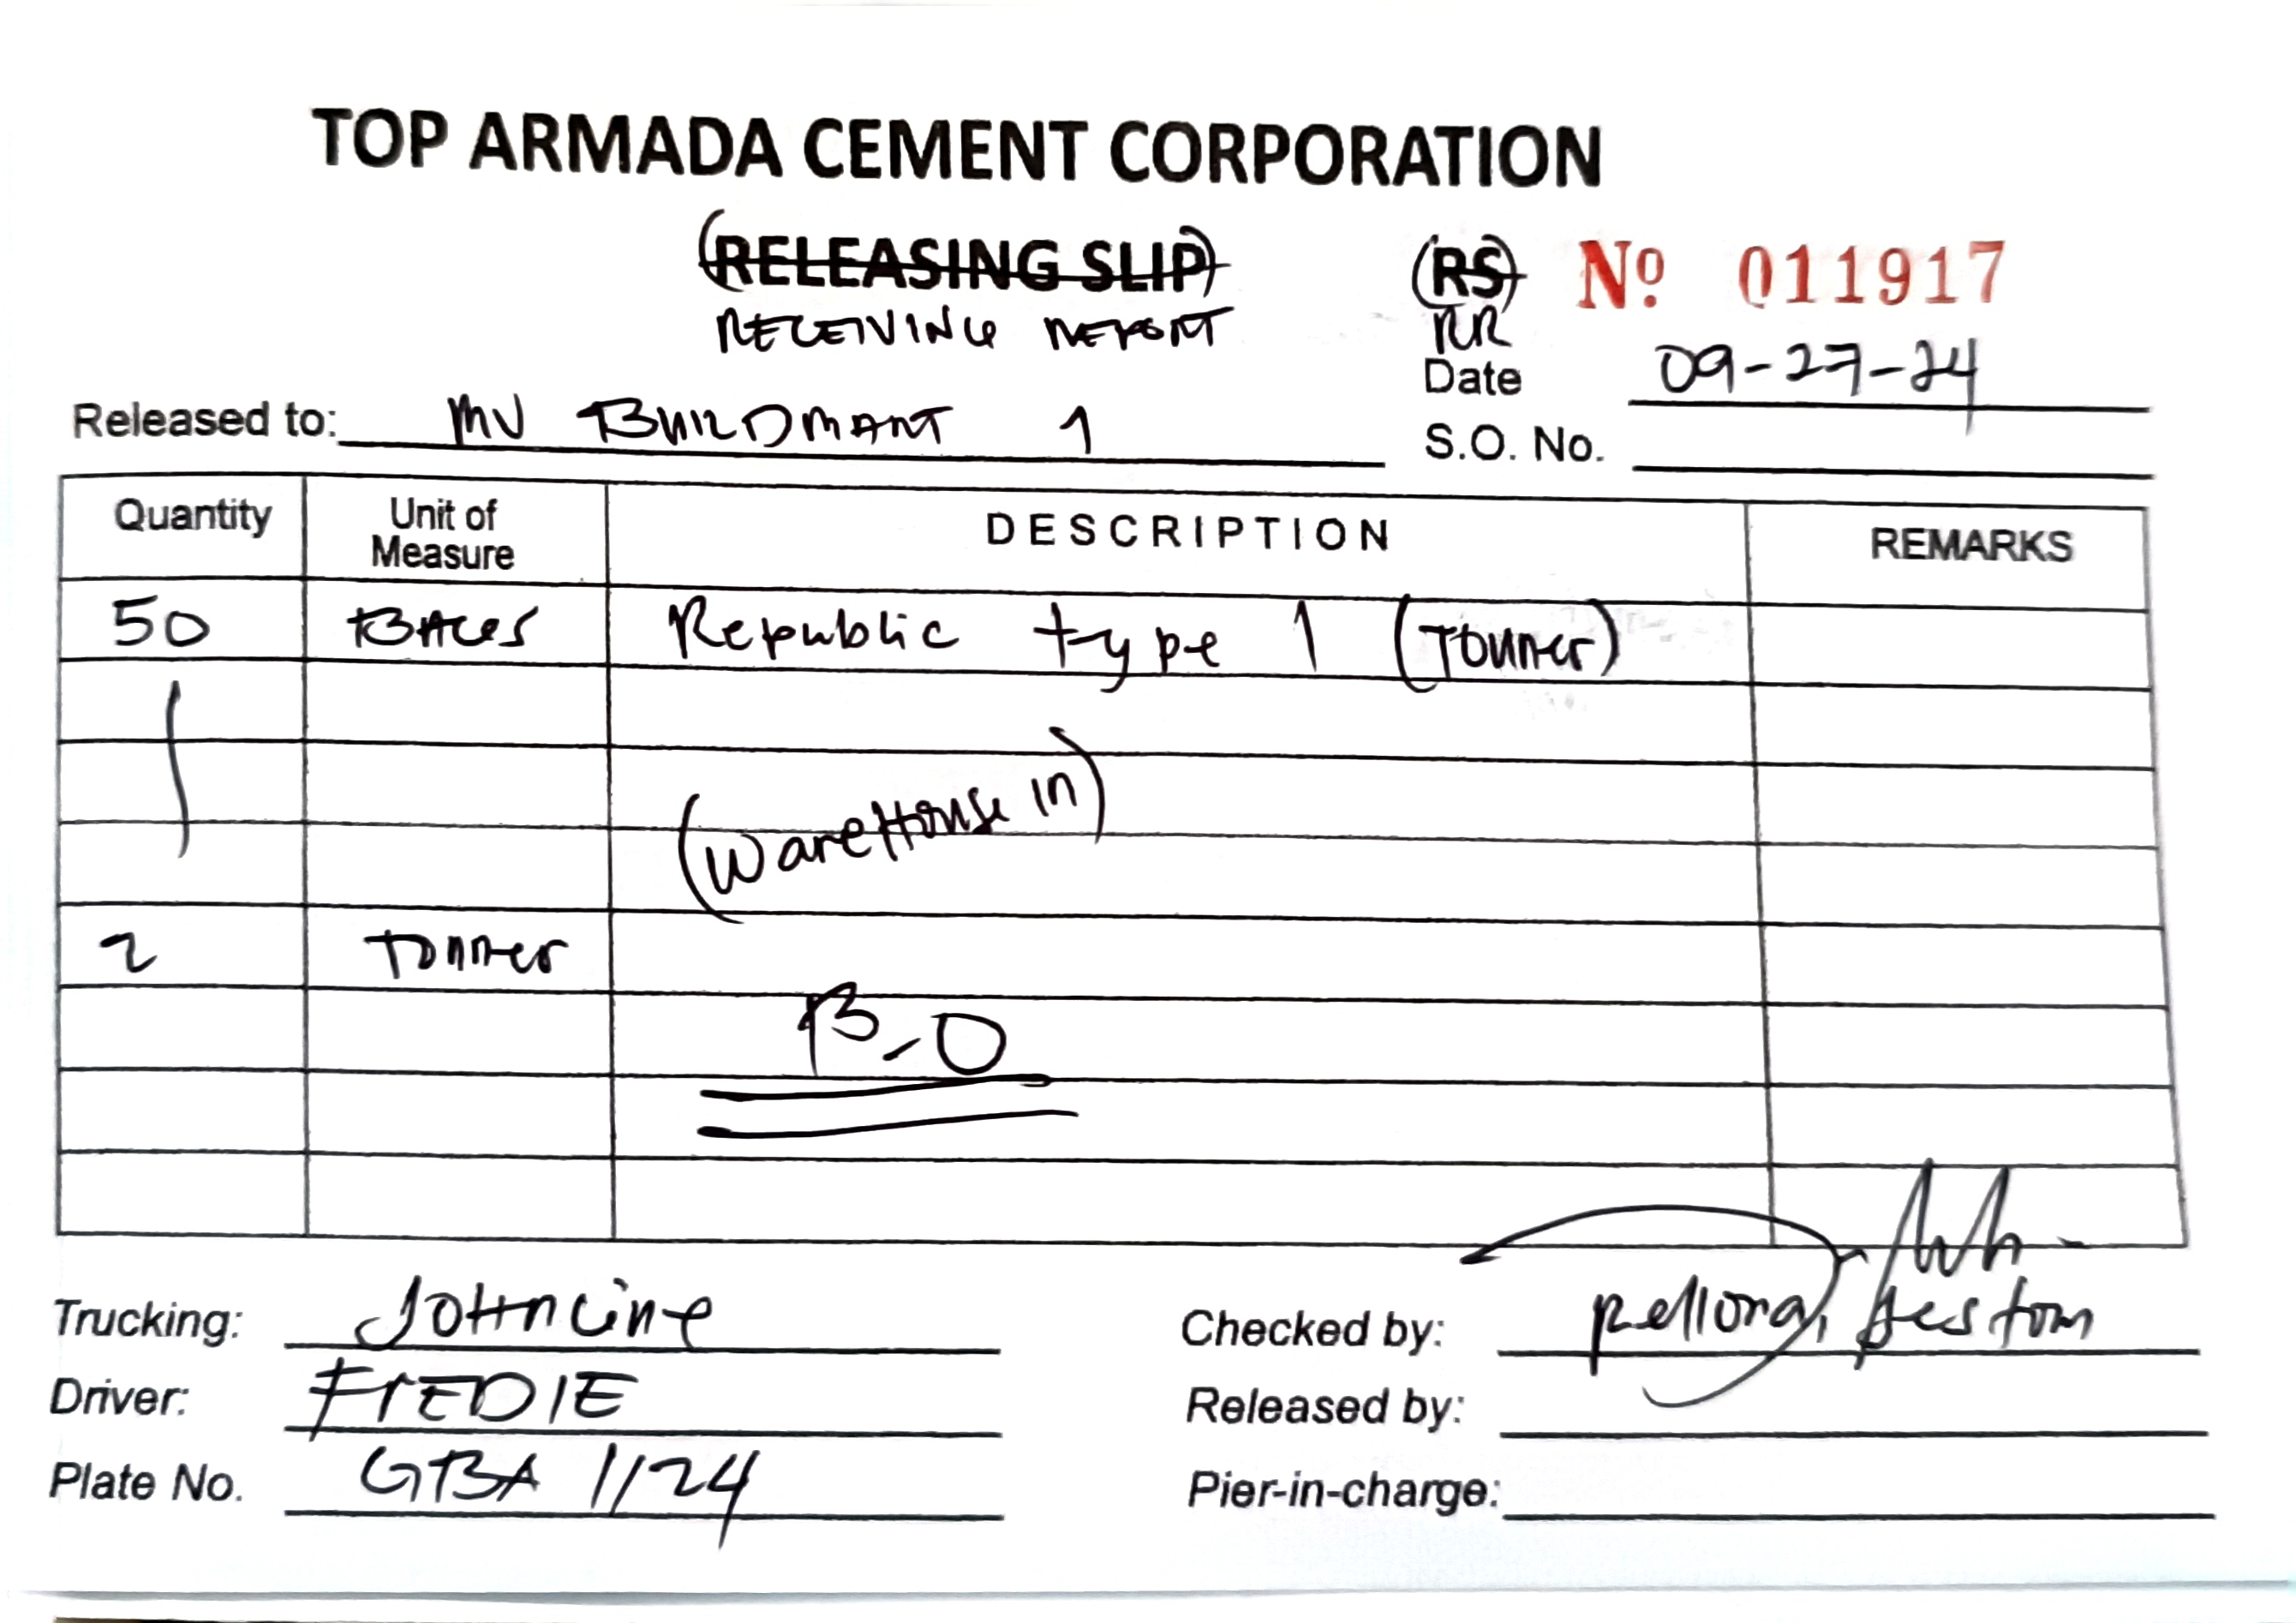 TOP ARMADA CEMENT CORPORATION
(RELEASING SLIP) (RS) Nº 011917
RECEIVING REPORT RR
Date 09-27-24
Released to: MV BUILDMART 1
S.O. No.
Quantity Unit of Measure DESCRIPTION REMARKS
50 BAGS Republic type 1 (Tonner)
(WareHouse in)
2 Tonner
B-O
Trucking: JOHNCINE Checked by: Rellona,
Driver: FREDIE Released by:
Plate No. GBA 1124 Pier-in-charge: